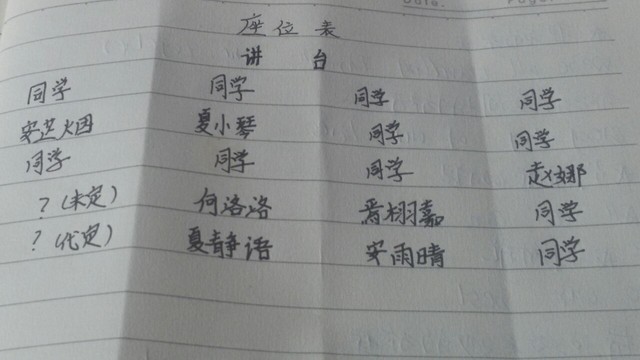 Date. Page.
座位表
讲台
同学 同学 同学 同学
安芷烟 夏小琴 同学 同学
同学 同学 同学 赵娜
?(未定) 何洛洛 晋栩嘉 同学
?(代定) 夏静语 安雨晴 同学